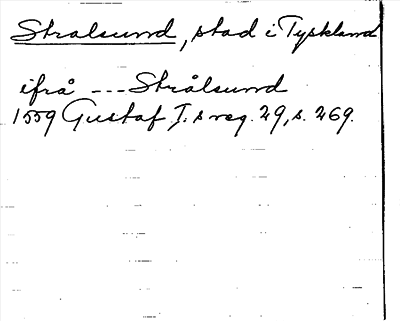 Stralsund, stad i Tyskland
ifrå --- Strålsund
1559 Gustaf I:s reg. 29, s. 269.